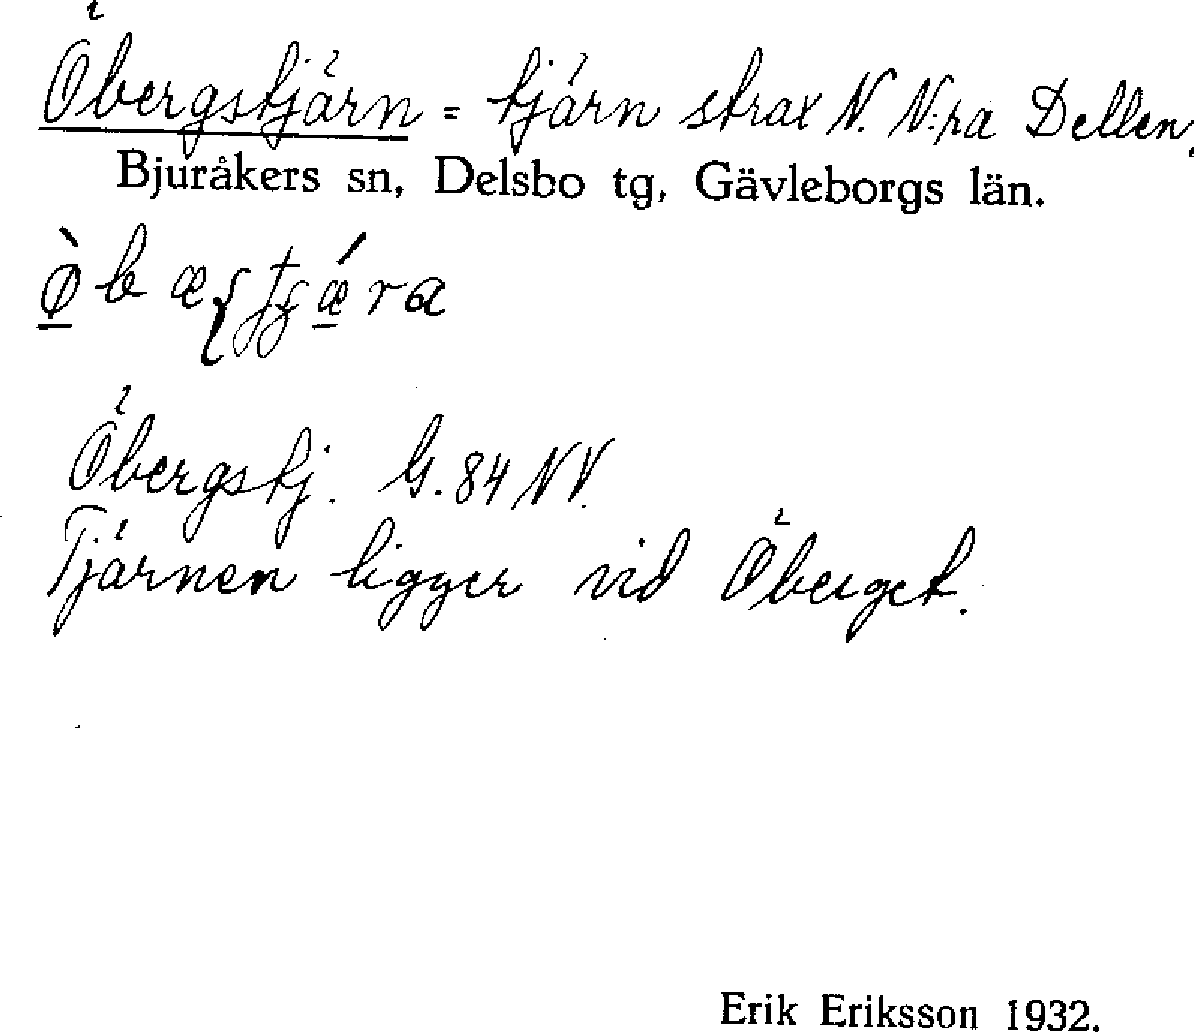 Öbergstjärn = tjärn strax N. N:ra Dellen,
Bjuråkers sn, Delsbo tg, Gävleborgs län.
Öbergstj. G. 84 NV.
Tjärnen ligger vid Öberget.
Erik Eriksson 1932.